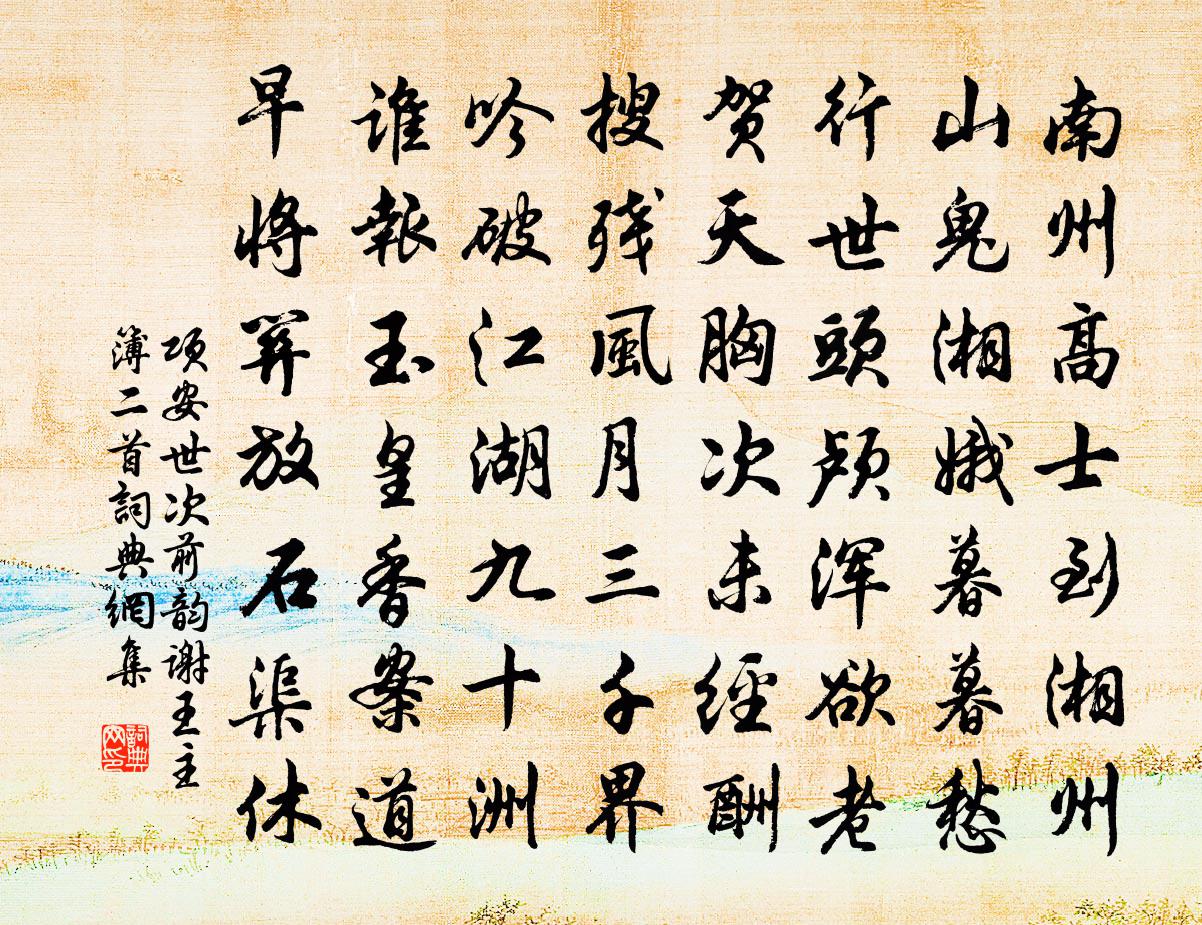 南州高士到湘州
山鬼湘娥暮暮愁
行世頭颅浑欲老
贺天胸次未經酬
搜残風月三千界
吟破江湖九十洲
谁報玉皇香案道
早將放石渠休
项安世次前韵谢王主
簿二首詞典網集
詞典网印